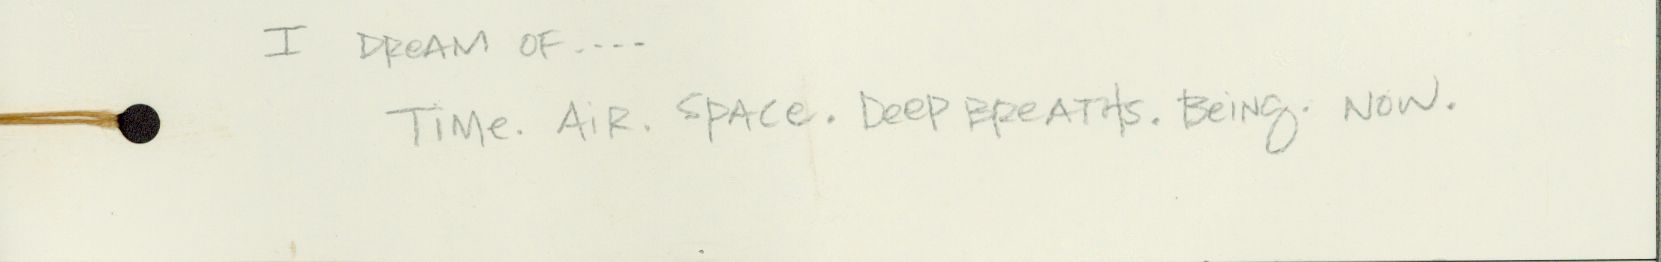 I DReAM OF.----
TiMe. AiR. SpACe. DeeP BReATHs. BeiNg. NOW.